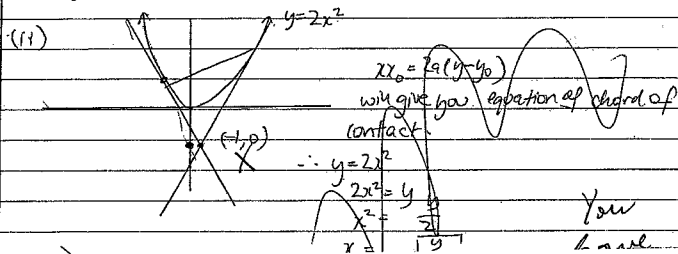 (ii)
y=2x²
xx₀ = 2a(y-y₀)
will give you equation of chord of
contact.
(-1, 0)
∴ y=2x²
2x² = y
x² = y/2
x =
You
have